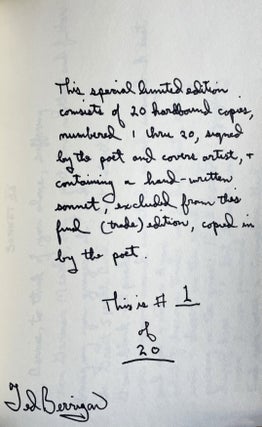 This special limited edition
consists of 20 hardbound copies,
numbered 1 thru 20, signed
by the poet and covers artist, +
containing a hand-written
sonnet, excluded from this
final (trade) edition, copied in
by the poet.
This is # 1
of
20
Ted Berrigan